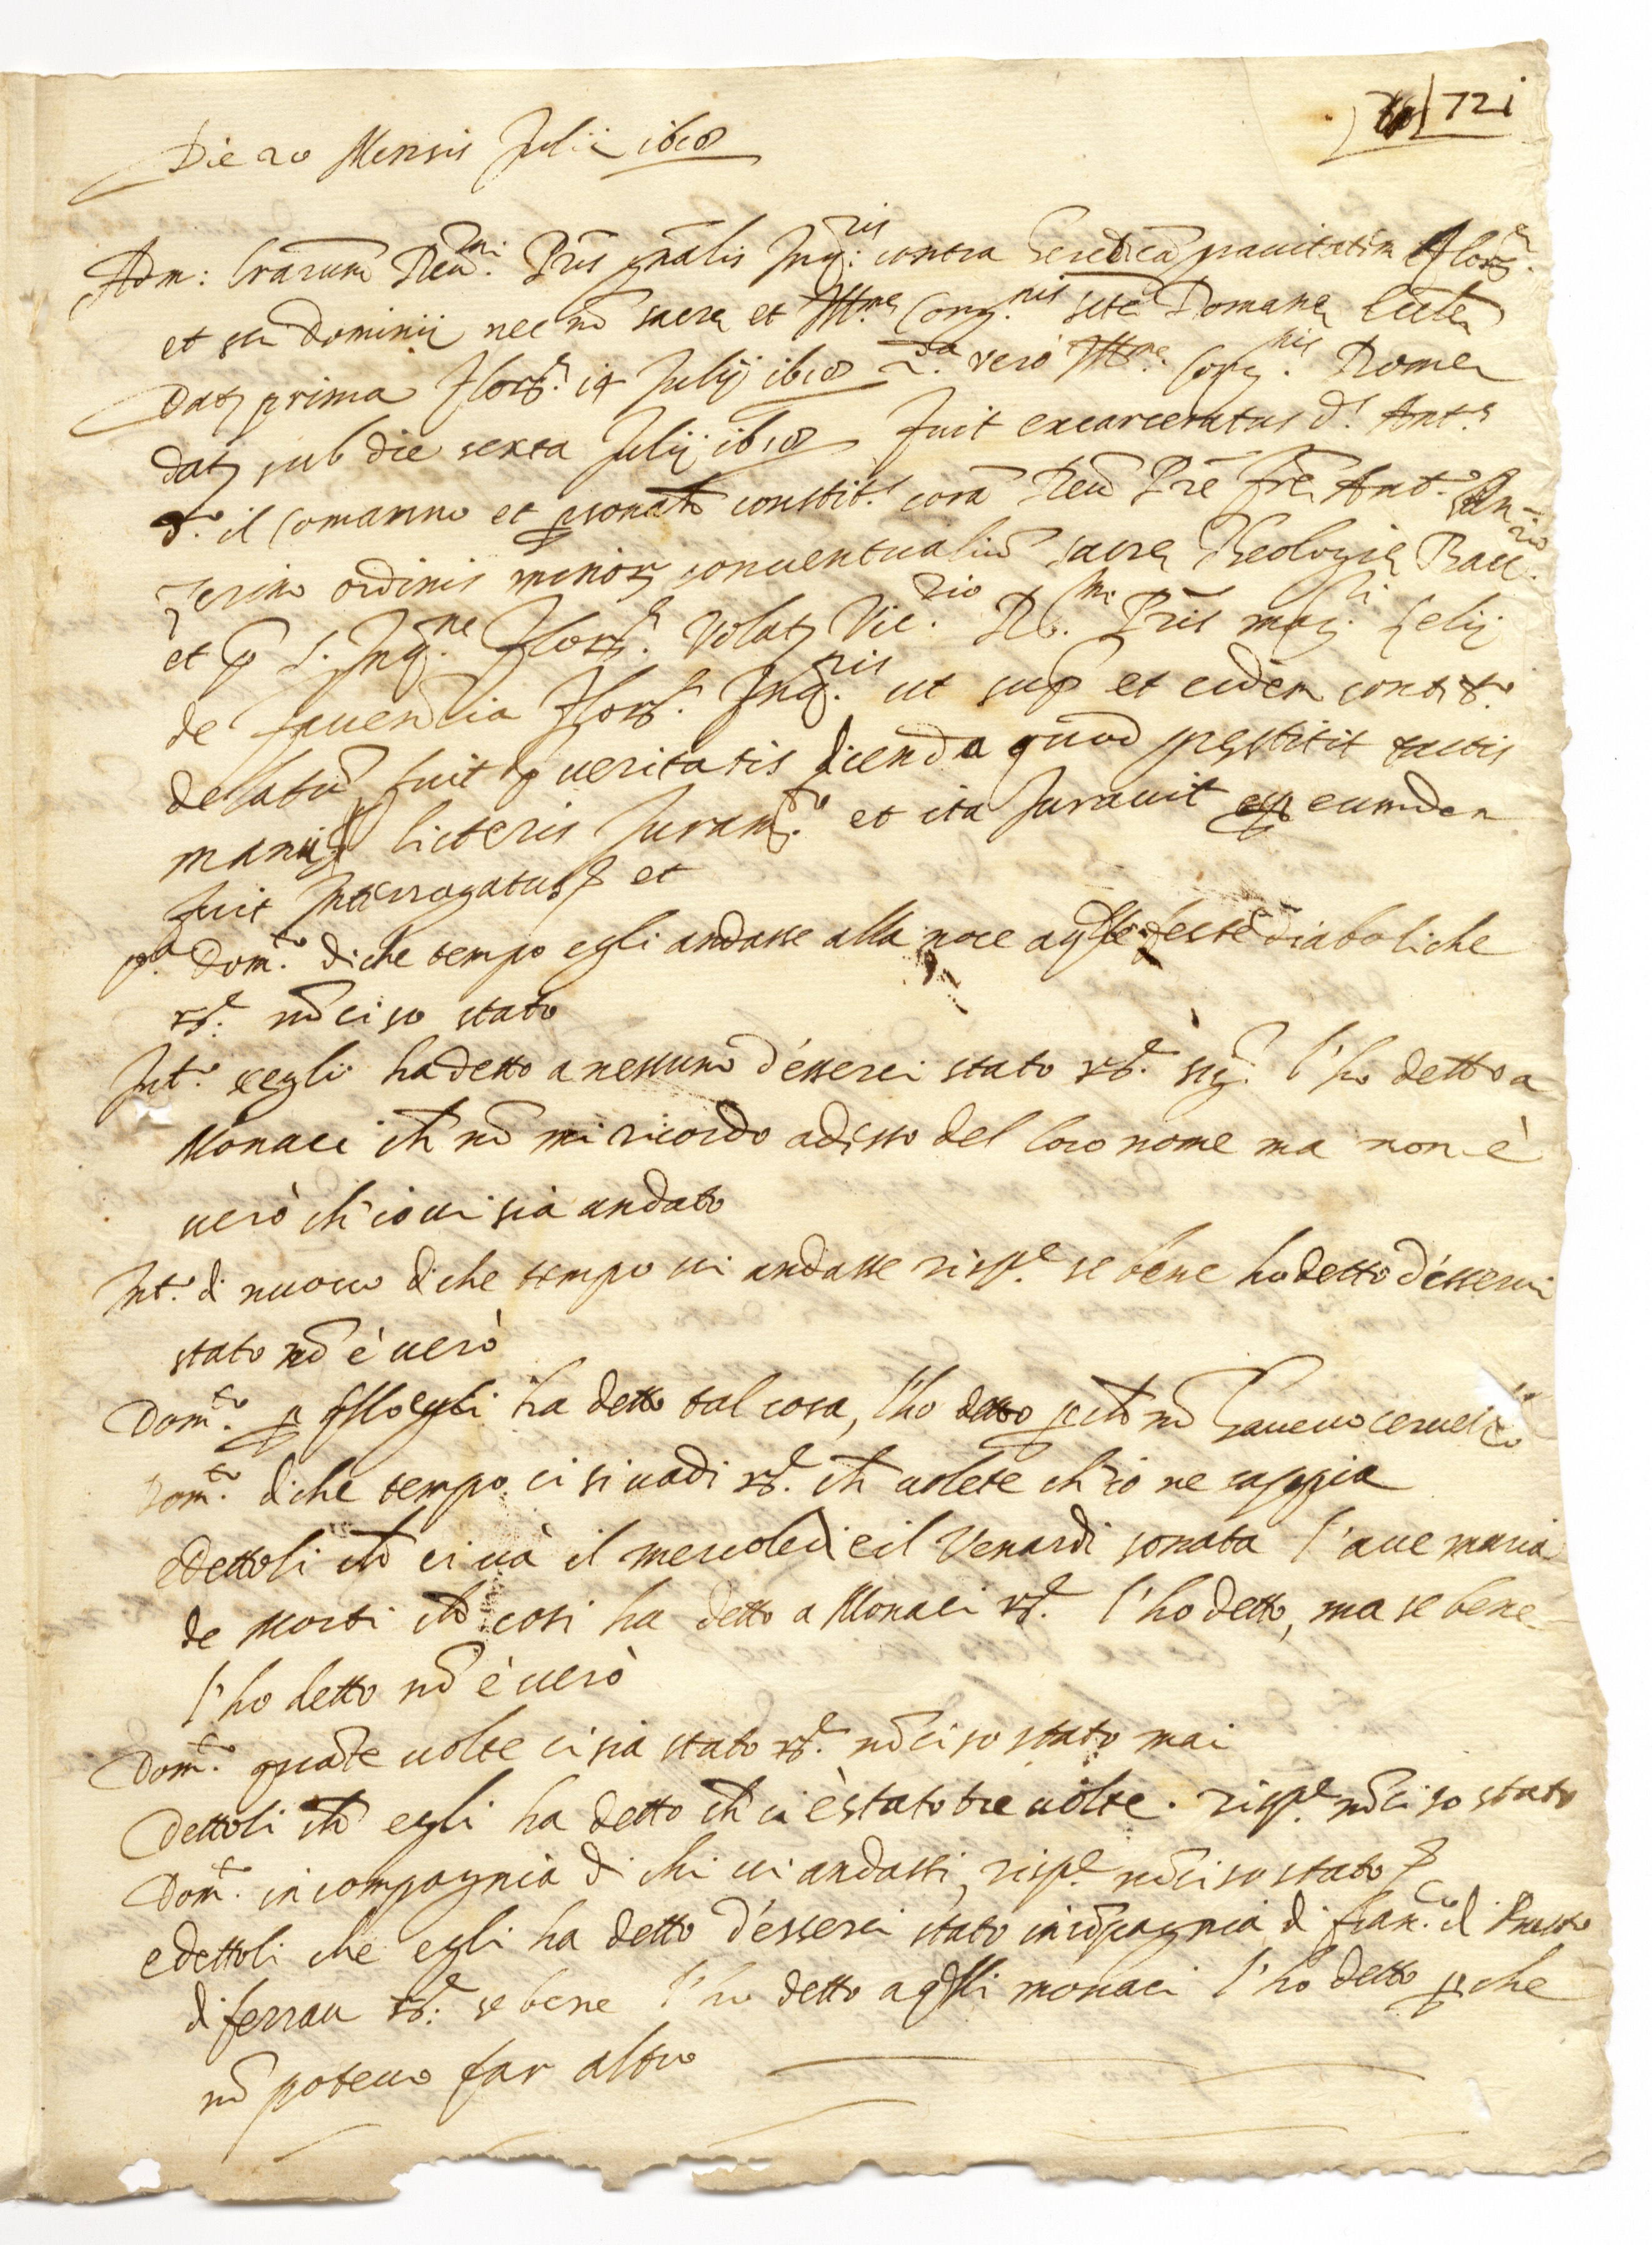 721
Die 20 Mensis Julii 1618
Adm: l'rarum Reu.mi P'ris g'nalis Inq.ris contra hereticã prauitatem Flor.
et sui Dominii nec nõ sacrę et Ill.me Cong.nis s.tę Romanę Eccl.ę
Dat prima Flor. 14 Julij 1618 2.da vero Ill.me Cong.nis Romę
dat sub die sexta Julij 1618 fuit excarceratus d. Ant.
d.o il Comanno et p'sonat constit. corã Reũ Prē frē Ant.o
ordinis minor conuentualiũ sacrę Theologię Bacc.rio
et p S. Inq.ne Flor. Volat Vic.rio R. P'ris mag.ri Lelij
de Fauentia Flor. Inq.ris ut sup et eidem const.o
delatũ fuit p ueritatis dicenda quod prestitit tactis
manib literis Juram.to et ita Jurauit eumdem
fuit Interrogatus et
p.a Dom.to di che tempo egli andasse alla noce a q'lle feste diaboliche
r.e nõ ci so stato
Int.o se egli ha detto a nessuno d'esserci stato r.e sig. l'ho detto a
Monaci ch nõ mi ricordo adesso del loro nome ma non è
uerò ch'io ui sia andato
Int.o di nuouo di che tempo ui andasse risp.e se bene ho detto d'esserui
stato nõ è uerò
Dom.to p q'llo egli ha detto tal cosa, l'ho detto p ch nõ haueuo ceruello
Dom.to di che tempo ci si uadi r.e ch uolete ch'io ne sappia
e dettoli ch ci uà il mercoledi e il Venardi sonata l'aue maria
de Morti ch cosi ha detto a Monaci r.e l'ho detto, ma se bene
l'ho detto nõ è uerò
Dom.to quãte uolte ci sia stato r.e nõ ci so stato mai
Dettoli ch egli ha detto ch ci è stato tre uolte. risp.e nõ ci so stato
Dom.to in compagnia di chi ui andassi, risp.e nõ ci so stato
e dettoli che egli ha detto d'esserci stato in cõpagnia di fran.co di
di ferrau r.e se bene l'ho detto a q'lli monaci l'ho detto p che
nõ poteuo far altro